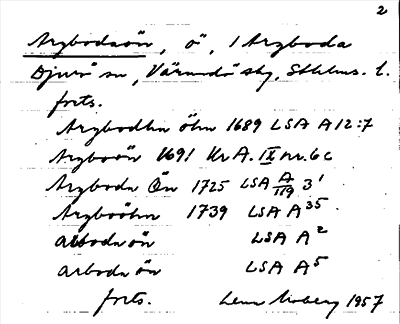 2
Arzbodaön, ö, i Arzboda
Djurö sn, Värmdö skg, Sthlms. l.
forts.
Arzbodhn öhn 1689 LSA A12:7
Arzboön 1691 Kr A. IX nr. 6c
Arzboda Ön 1725 LSA A/119 3'
Arzboöhn 1739 LSA A35
arboda ön LSA A2
arboda ön LSA A5
forts. Lena Moberg 1957